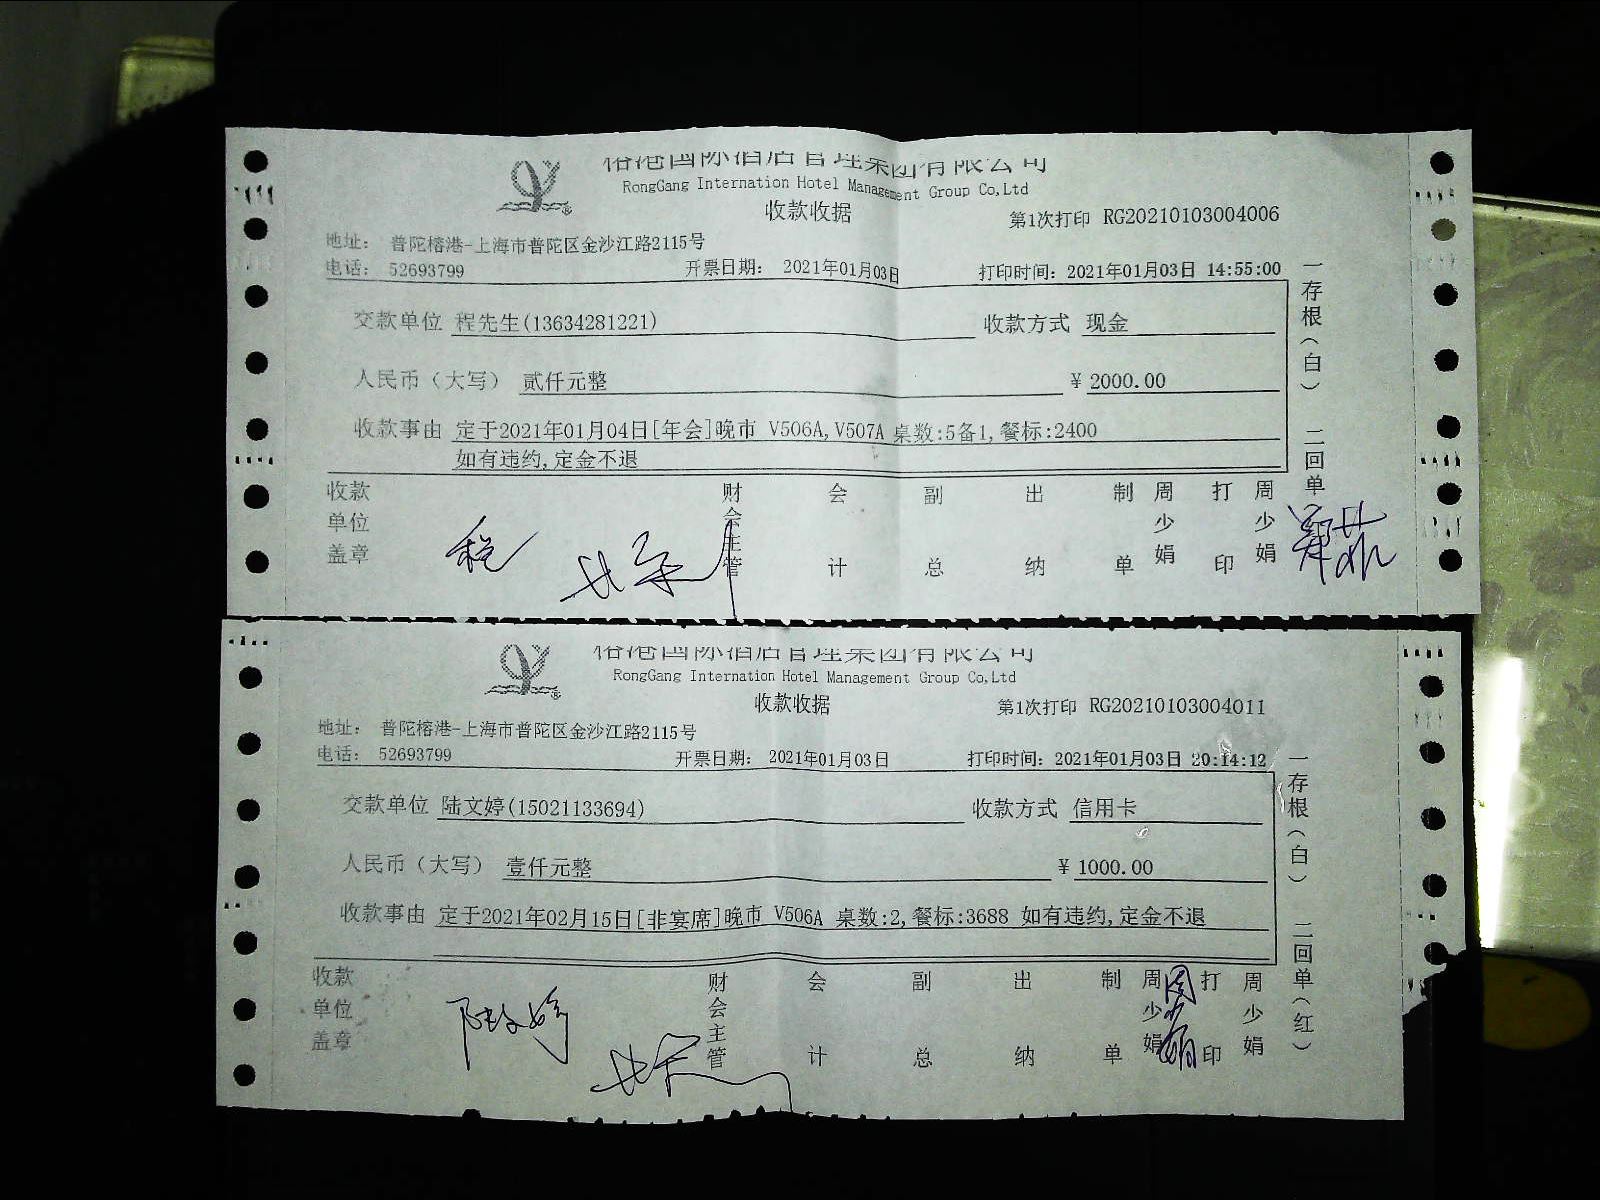 榕港国际酒店管理集团有限公司
RongGang Internation Hotel Management Group Co,Ltd
收款收据
第1次打印 RG20210103004006
地址： 普陀榕港-上海市普陀区金沙江路2115号
电话： 52693799 开票日期： 2021年01月03日 打印时间：2021年01月03日 14:55:00
交款单位 程先生(13634281221) 收款方式 现金
人民币（大写） 贰仟元整 ¥ 2000.00
收款事由 定于2021年01月04日[年会]晚市 V506A,V507A 桌数:5备1,餐标:2400
如有违约,定金不退
收款单位盖章 程 财会主管 会计 副总 出纳 制单 周少娟 打印 周少娟
一存根（白） 二回单
榕港国际酒店管理集团有限公司
RongGang Internation Hotel Management Group Co,Ltd
收款收据
第1次打印 RG20210103004011
地址： 普陀榕港-上海市普陀区金沙江路2115号
电话： 52693799 开票日期： 2021年01月03日 打印时间：2021年01月03日 20:14:12
交款单位 陆文婷(15021133694) 收款方式 信用卡
人民币（大写） 壹仟元整 ¥ 1000.00
收款事由 定于2021年02月15日[非宴席]晚市 V506A 桌数:2,餐标:3688 如有违约,定金不退
收款单位盖章 陆文婷 财会主管 会计 副总 出纳 制单 周少娟 周少娟 打印 周少娟
一存根（白） 二回单（红）